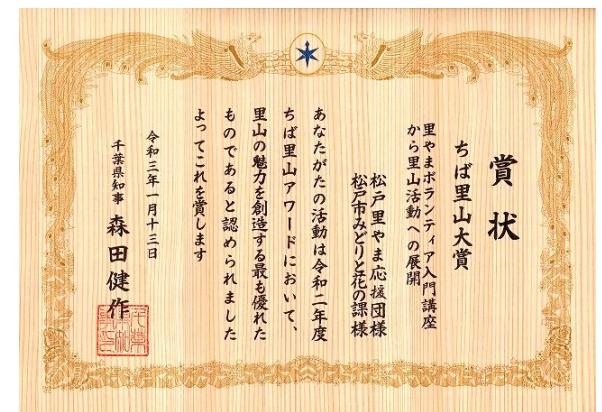 賞状
ちば里山大賞
里やまボランティア入門講座
から里山活動への展開
松戸里やま応援団様
松戸市みどりと花の課様
あなたがたの活動は令和二年度
ちば里山アワードにおいて、
里山の魅力を創造する最も優れた
ものであると認められました
よってこれを賞します
令和三年一月十三日
千葉県知事 森田健作